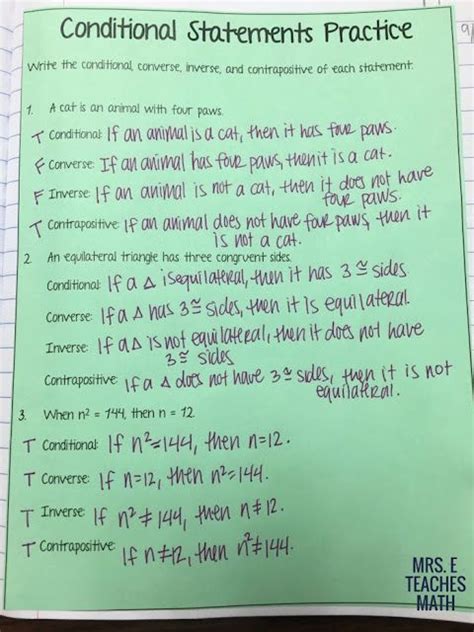 Conditional Statements Practice
9/
Write the conditional, converse, inverse, and contrapositive of each statement.
1. A cat is an animal with four paws.
T Conditional: If an animal is a cat, then it has four paws.
F Converse: If an animal has four paws, then it is a cat.
F Inverse: If an animal is not a cat, then it does not have
four paws.
T Contrapositive: If an animal does not have four paws, then it
is not a cat.
2. An equilateral triangle has three congruent sides.
Conditional: If a △ is equilateral, then it has 3 ≅ sides.
Converse: If a △ has 3 ≅ sides, then it is equilateral.
Inverse: If a △ is not equilateral, then it does not have
3 ≅ sides
Contrapositive: If a △ does not have 3 ≅ sides, then it is not
equilateral.
3. When n² = 144, then n = 12.
T Conditional: If n²=144, then n=12.
T Converse: If n=12, then n²=144.
T Inverse: If n²≠144, then n≠12.
T Contrapositive: If n≠12, then n²≠144.
MRS. E
TEACHES
MATH